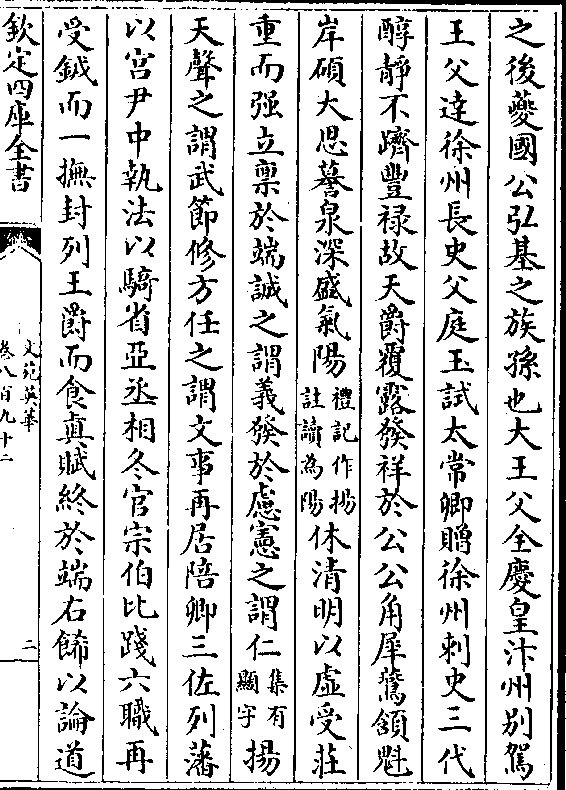 之後夔國公弘基之族孫也大王父全慶皇汴州别駕
王父達徐州長史父庭玉試太常卿贈徐州刺史三代
醇靜不躋豐禄故天爵覆露發祥於公公角犀鶱頷魁
岸碩大思蕃泉深盛氣陽禮記作揚註讀為陽休清明以虛受莊
重而强立禀於端誠之謂義發於慮憲之謂仁集有顯字揚
天聲之謂武節修方任之謂文事再居陪卿三佐列藩
以宫尹中執法以騎省亞丞相冬官宗伯比踐六職再
受鉞而一撫封列王爵而食真賦終於端右餙以論道
欽定四庫全書
文苑英華
卷八百九十二
二